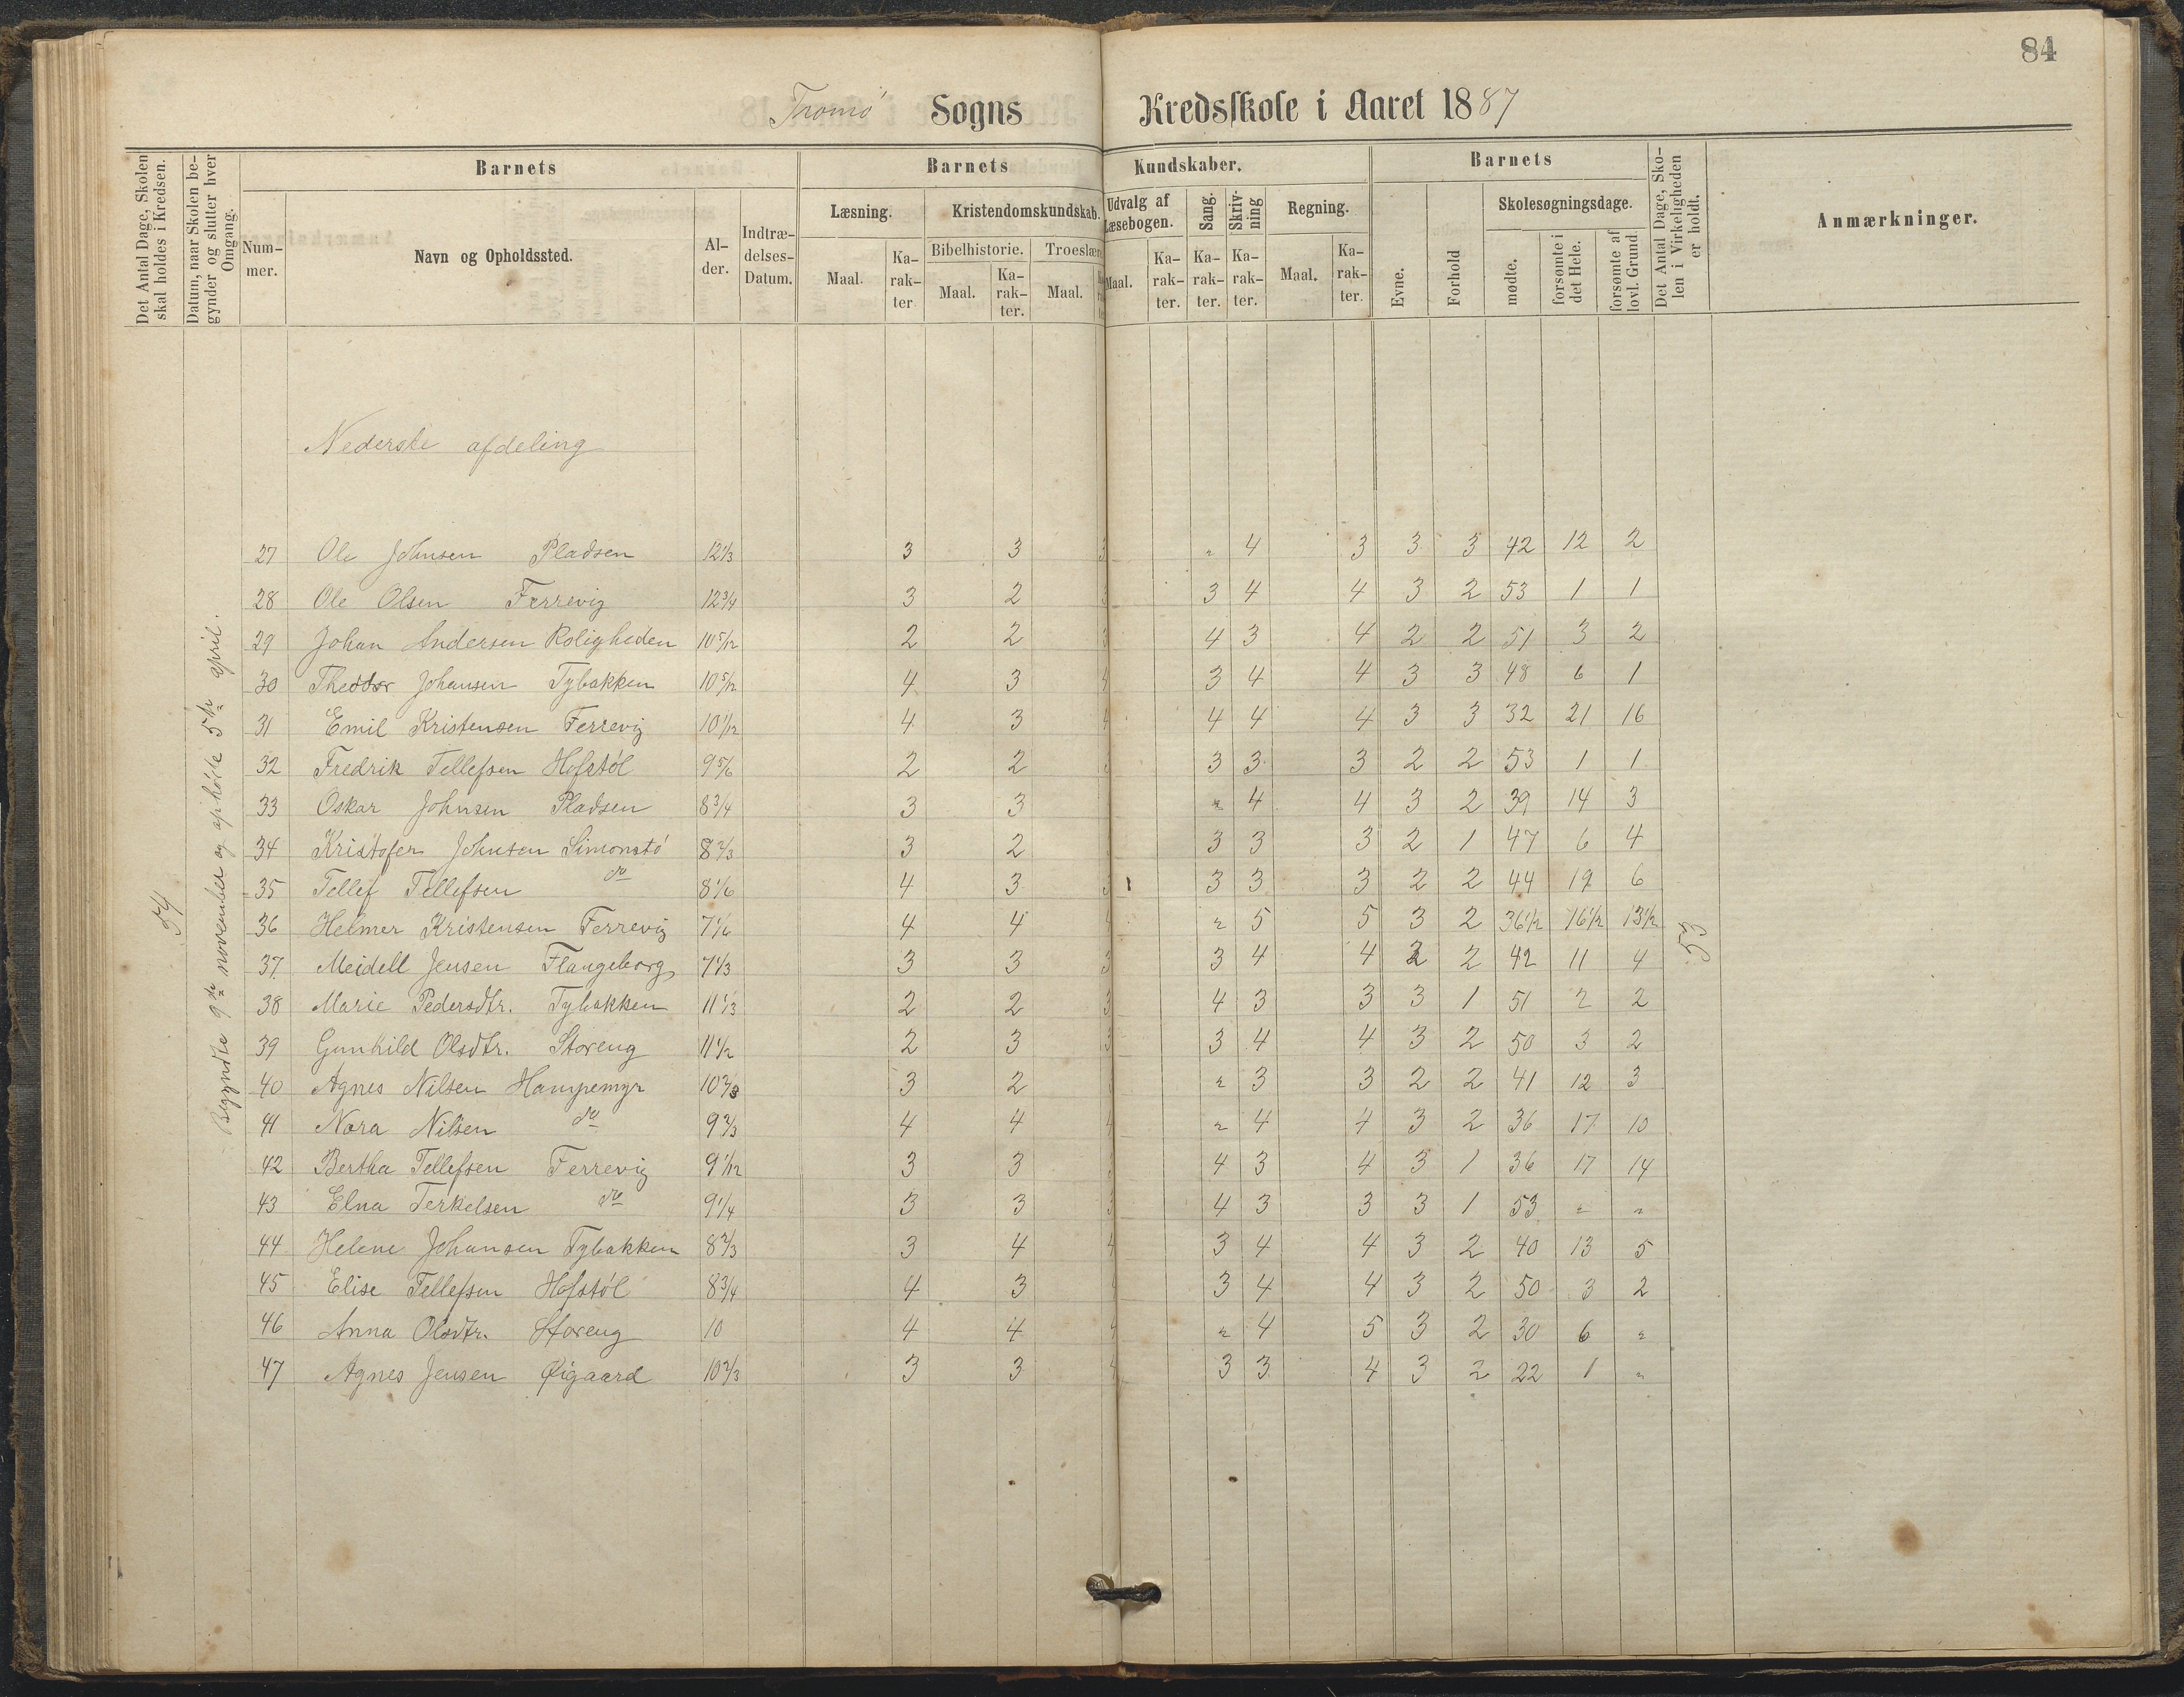 84
Tromø Sogns Kredsskole i Aaret 1887
Det Antal Dage, Skolen skal holdes i Kredsen.
Datum, naar Skolen begynder og slutter hver Omgang.
Barnets
Nummer.
Navn og Opholdssted.
Alder.
Indtrædelses-Datum.
Barnets Kundskaber.
Læsning.
Maal.
Karakter
Kristendomskundskab.
Bibelhistorie.
Maal.
Karakter.
Troeslære
Maal.
Udvalg af Læsebogen.
Maal.
Karakter.
Sang.
Karakter.
Skrivning
Karakter.
Regning.
Maal.
Karakter.
Barnets
Evne.
Forhold
Skolesøgningsdage.
mødte.
forsømte i det Hele.
forsømte af lovl. Grund
Det Antal Dage, Skolen i Virkeligheden er holdt.
Anmærkninger.
54
Begyndte 9de november og ophølte 5te april.
Nederste afdeling
27 Ole Johnsen Pladsen 12 1/3 3 3 3 " 4 3 3 3 42 12 2
28 Ole Olsen Ferrevig 12 3/4 3 2 3 3 4 4 3 2 53 1 1
29 Johan Andersen Roligheden 10 5/12 2 2 3 4 3 4 2 2 51 3 2
30 Theodor Johansen Tybakken 10 5/12 4 3 4 3 4 4 3 3 48 6 1
31 Emil Kristensen Ferrevig 10 1/12 4 3 4 4 4 4 3 3 32 21 16
32 Fredrik Tellefsen Hofstøl 9 5/6 2 2 3 3 3 3 2 2 53 1 1
33 Oskar Johnsen Pladsen 8 3/4 3 3 " 4 4 3 2 39 14 3
34 Kristofer Johnsen Simonstø 8 2/3 3 2 3 3 3 2 1 47 6 4
35 Tellef Tellefsen do 8 1/6 4 3 3 3 3 3 2 2 44 19 6
36 Helmer Kristensen Ferrevig 7 1/6 4 4 4 " 5 5 3 2 36 1/2 16 1/2 13 1/2
37 Meidell Jensen Flangeborg 7 1/3 3 3 3 3 4 4 2 2 42 11 4
38 Marie Pedersdtr. Tybakken 11 1/3 2 2 3 4 3 3 3 1 51 2 2
39 Gunhild Olsdtr. Storeng 11 1/2 2 3 3 3 4 4 3 2 50 3 2
40 Agnes Nilsen Hampemyr 10 2/3 3 2 " 3 3 2 2 41 12 3
41 Nora Nilsen do 9 2/3 4 4 4 " 4 4 3 2 36 17 10
42 Bertha Tellefsen Ferrevig 9 1/12 3 3 4 3 4 3 1 36 17 14
43 Elna Terkelsen do 9 1/4 3 3 3 4 3 3 3 1 53 " "
44 Helene Johansen Tybakken 8 2/3 3 4 4 3 4 4 3 2 40 13 5
45 Elise Tellefsen Hofstøl 8 3/4 4 3 4 3 4 4 3 2 50 3 2
46 Anna Olsdtr. Storeng 10 4 4 4 " 4 5 3 2 30 6 "
47 Agnes Jensen Øigaard 10 2/3 3 3 4 3 3 4 3 2 22 1 "
53